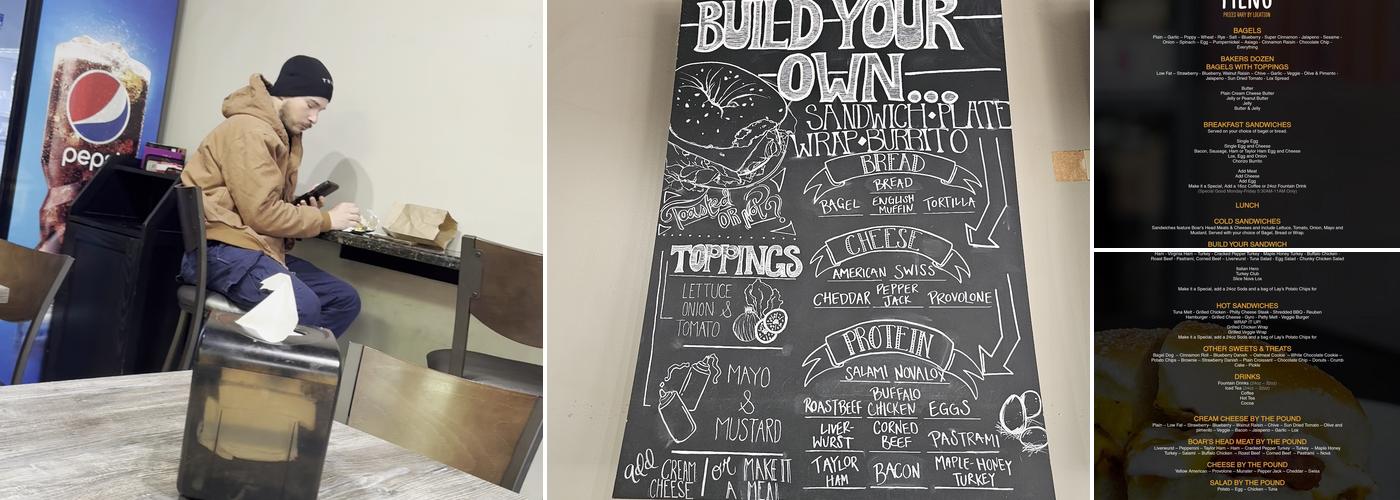 pepsi
BUILD YOUR
OWN...
SANDWICH • PLATE
WRAP • BURRITO
BREAD
BREAD
BAGEL ENGLISH MUFFIN TORTILLA
Toasted OR Not?
CHEESE
AMERICAN SWISS
CHEDDAR PEPPER JACK PROVOLONE
TOPPINGS
LETTUCE
ONION &
TOMATO
MAYO
&
MUSTARD
add CREAM CHEESE or MAKE IT A MEAL
PROTEIN
SALAMI NOVALOX
ROASTBEEF BUFFALO CHICKEN EGGS
LIVER-WURST CORNED BEEF PASTRAMI
TAYLOR HAM BACON MAPLE-HONEY TURKEY
MENU
PRICES VARY BY LOCATION
BAGELS
Plain – Garlic – Poppy – Wheat - Rye - Salt – Blueberry - Super Cinnamon - Jalapeno - Sesame -
Onion – Spinach – Egg – Pumpernickel – Asiago - Cinnamon Raisin - Chocolate Chip -
Everything
BAKERS DOZEN
BAGELS WITH TOPPINGS
Low Fat – Strawberry - Blueberry, Walnut Raisin – Chive – Garlic – Veggie - Olive & Pimento -
Jalapeno - Sun Dried Tomato - Lox Spread
Butter
Plain Cream Cheese Butter
Jelly or Peanut Butter
Jelly
Butter & Jelly
BREAKFAST SANDWICHES
Served on your choice of bagel or bread.
Single Egg
Single Egg and Cheese
Bacon, Sausage, Ham or Taylor Ham Egg and Cheese
Lox, Egg and Onion
Chorizo Burrito
Add Meat
Add Cheese
Add Egg
Make it a Special, Add a 16oz Coffee or 24oz Fountain Drink
(Special Good Monday-Friday 5:30AM-11AM Only)
LUNCH
COLD SANDWICHES
Sandwiches feature Boar's Head Meats & Cheeses and include Lettuce, Tomato, Onion, Mayo and
Mustard. Served with your choice of Bagel, Bread or Wrap.
BUILD YOUR SANDWICH
Ham - Virginia Ham – Turkey - Cracked Pepper Turkey - Maple Honey Turkey - Buffalo Chicken -
Roast Beef - Pastrami, Corned Beef - Liverwurst - Tuna Salad - Egg Salad - Chunky Chicken Salad
Italian Hero
Turkey Club
Slice Nova Lox
Make it a Special, add a 24oz Soda and a bag of Lay's Potato Chips for
HOT SANDWICHES
Tuna Melt - Grilled Chicken - Philly Cheese Steak - Shredded BBQ - Reuben
Hamburger - Grilled Cheese - Gyro - Patty Melt - Veggie Burger
WRAP IT UP!
Grilled Chicken Wrap
Grilled Veggie Wrap
Make it a Special, add a 24oz Soda and a bag of Lay's Potato Chips for
OTHER SWEETS & TREATS
Bagel Dog – Cinnamon Roll – Blueberry Danish – Oatmeal Cookie – White Chocolate Cookie –
Potato Chips – Brownie – Strawberry Danish – Plain Croissant – Chocolate Chip – Donuts - Crumb
Cake - Pickle
DRINKS
Fountain Drinks (24oz – 32oz)
Iced Tea (24oz – 32oz)
Coffee
Hot Tea
Cocoa
CREAM CHEESE BY THE POUND
Plain – Low Fat – Strawberry– Blueberry – Walnut Raisin – Chive – Sun Dried Tomato - Olive and
pimento – Veggie – Bacon – Jalapeno – Garlic – Lox
BOAR'S HEAD MEAT BY THE POUND
Liverwurst – Pepperoni – Taylor Ham – Ham – Cracked Pepper Turkey – Turkey – Maple Honey
Turkey – Salami – Buffalo Chicken – Roast Beef – Corned Beef – Pastrami – Nova
CHEESE BY THE POUND
Yellow American – Provolone – Munster – Pepper Jack – Cheddar – Swiss
SALAD BY THE POUND
Potato – Egg – Chicken – Tuna